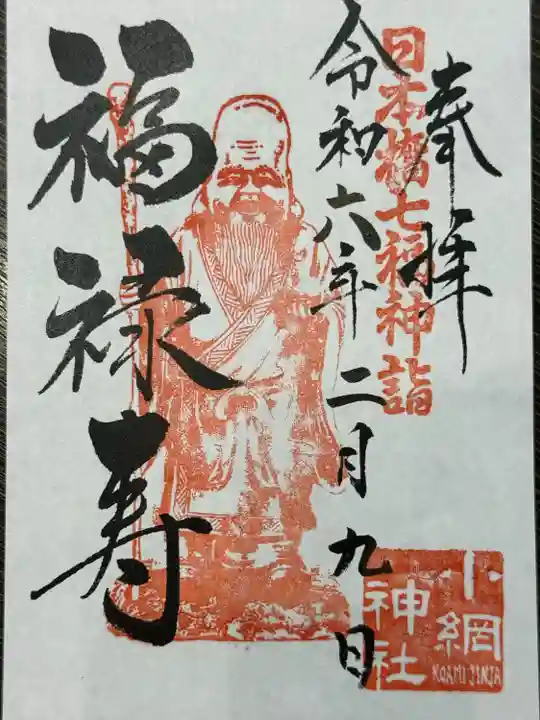 奉拝
日本橋七福神詣
令和六年二月九日
福禄寿
小網
神社
KOAMI JINJA